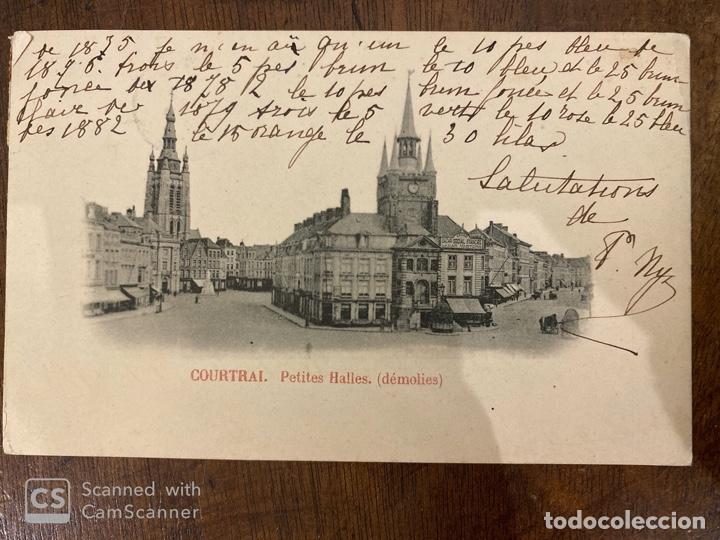 de 1875 je n'en ai qu'un le 10 pes bleu de
1876. trois le 5 pes brun le 10 bleu et le 25 brun
foncé des 1878 2 le 10 pes brun foncé et le 25 brun
de 1879 trois le 5 verts le 10 rose le 25 bleu
des 1882 le 15 orange le 30 lilas
Salutations
de
SALON SOCIAL FRANÇAIS
COURTRAI. Petites Halles. (démolies)
CS Scanned with
CamScanner
todocoleccion.net